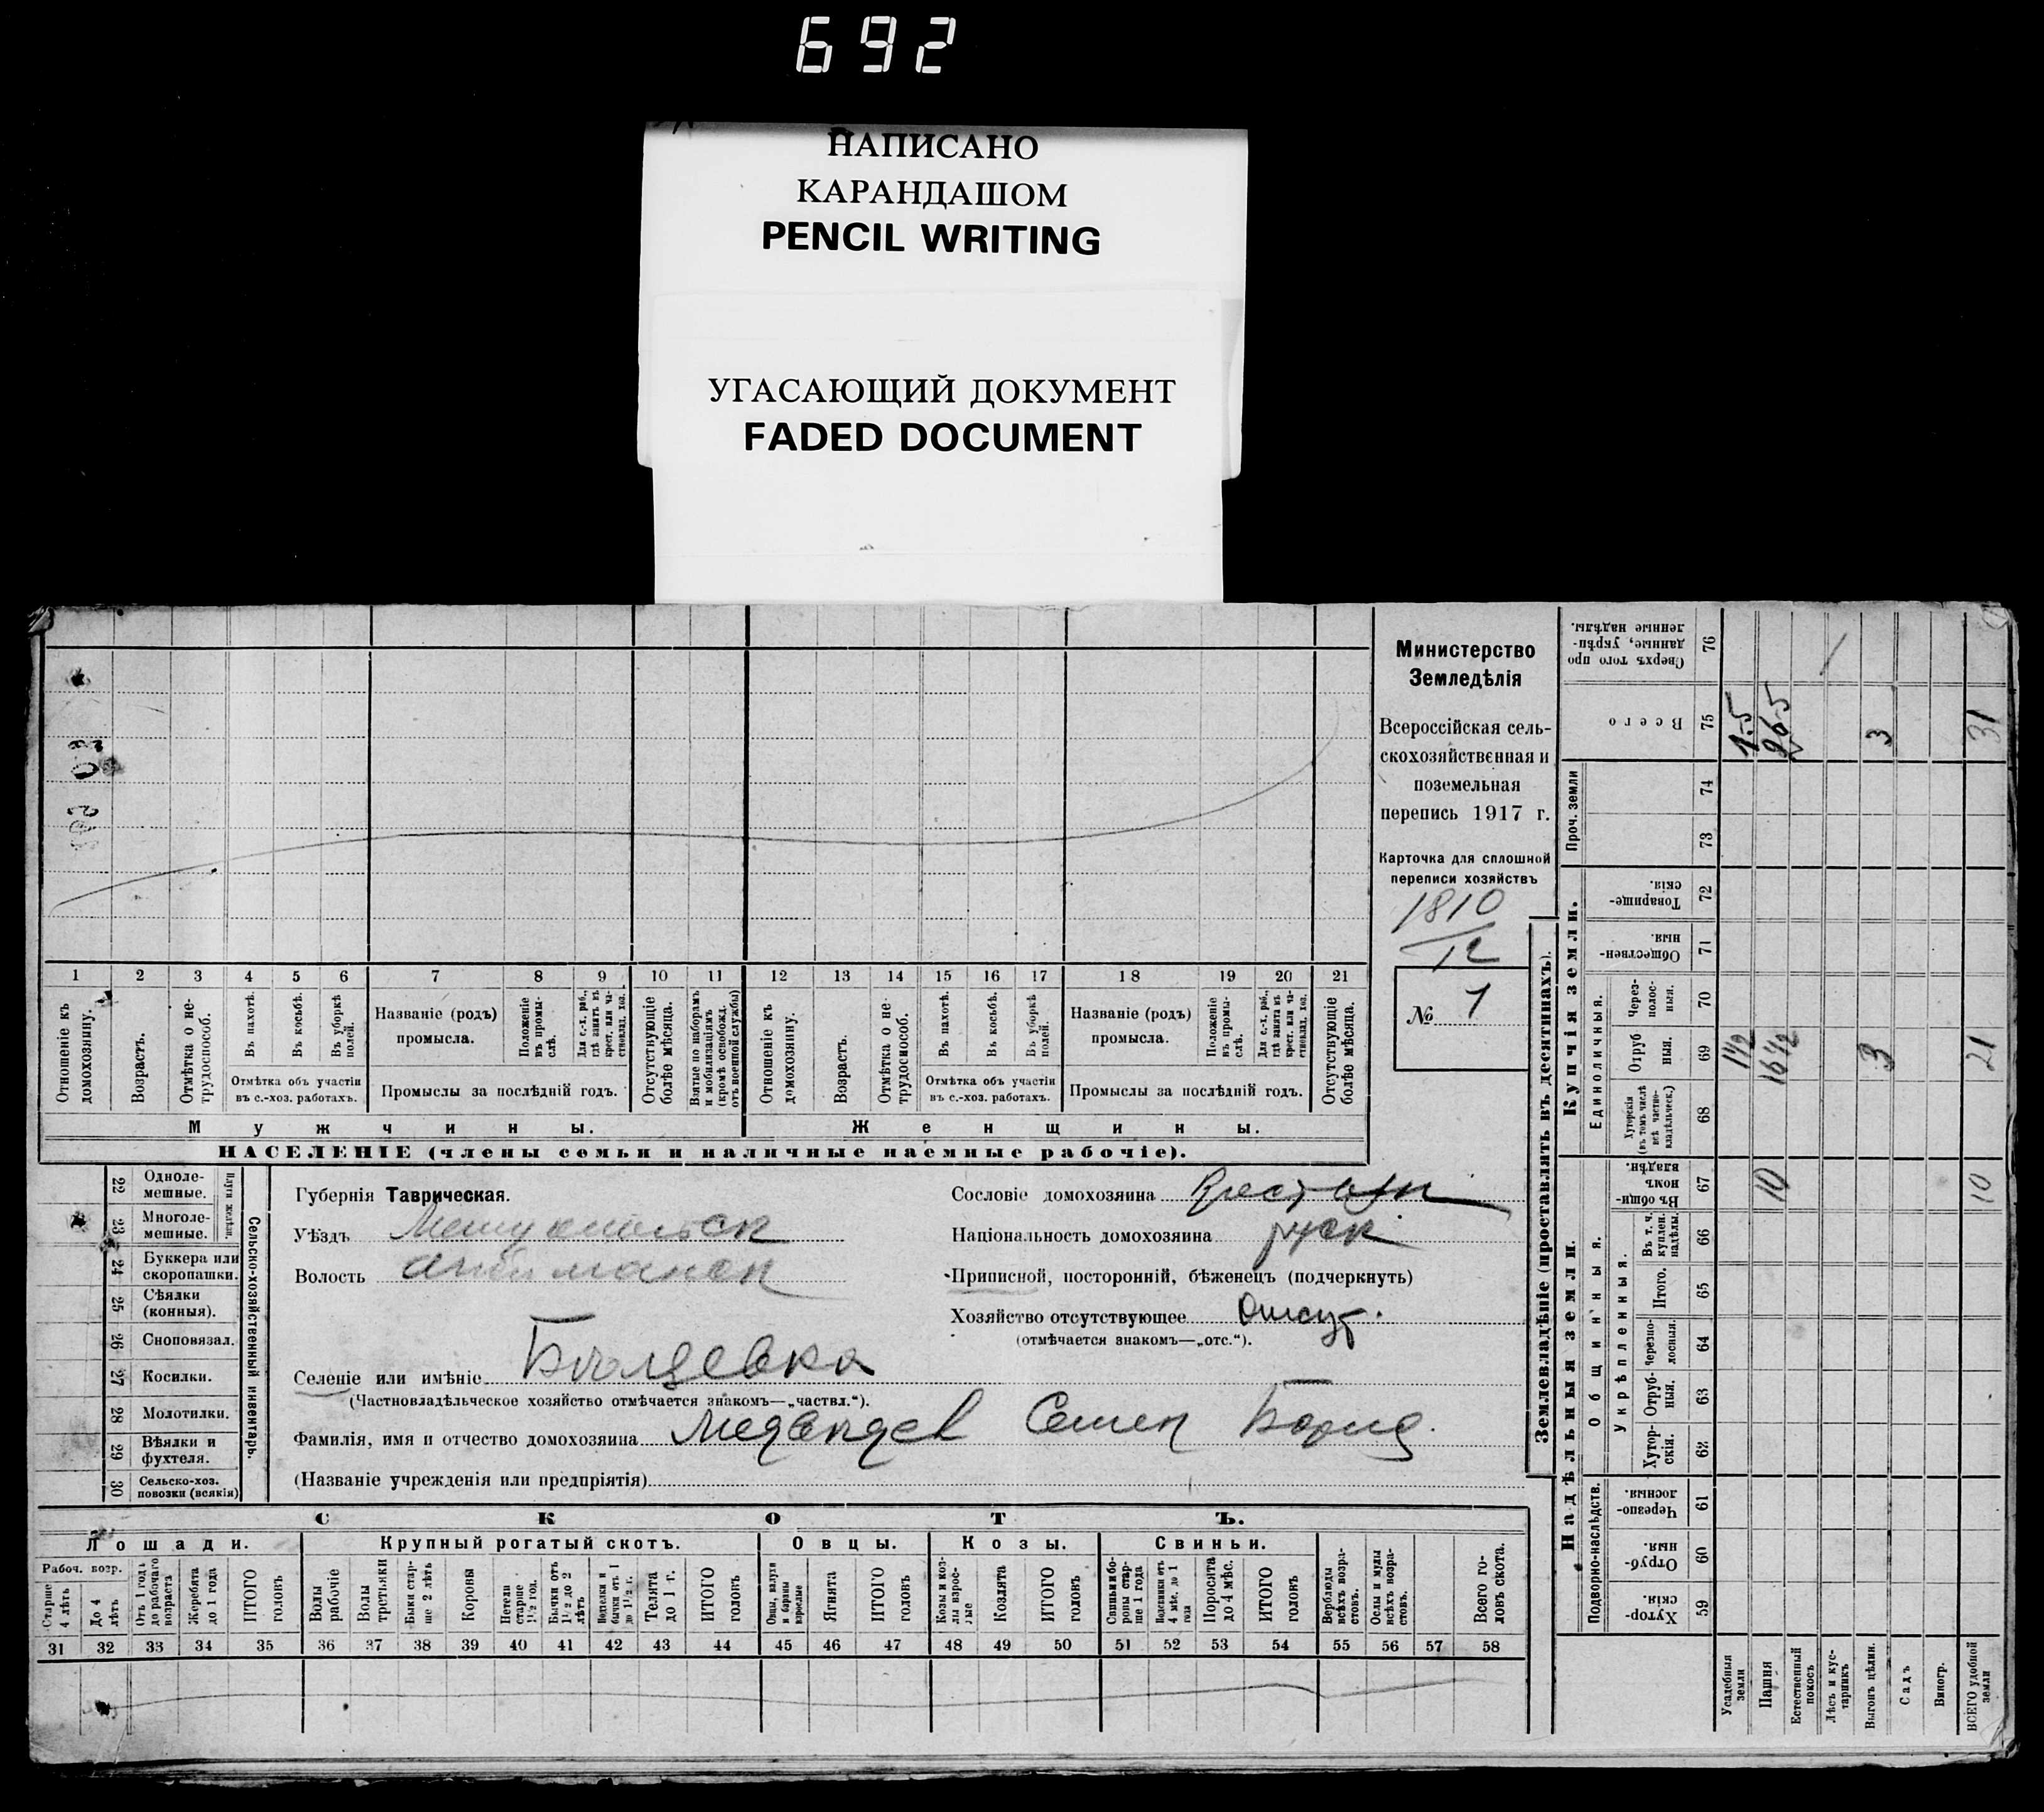 692
НАПИСАНО
КАРАНДАШОМ
PENCIL WRITING
УГАСАЮЩИЙ ДОКУМЕНТ
FADED DOCUMENT
Министерство
Земледѣлія
Всероссійская сель-
скохозяйственная и
поземельная
перепись 1917 г.
Карточка для сплошной
переписи хозяйствъ
1810
12
№ 1
1 2 3 4 5 6 7 8 9 10 11 12 13 14 15 16 17 18 19 20 21
Отношеніе къ домохозяину.
Возрастъ.
Отмѣтка о не-трудоспособ.
Въ пахотѣ.
Въ косьбѣ.
Въ уборкѣ полей.
Отмѣтка объ участіи
въ с.-хоз. работахъ.
Названіе (родъ)
промысла.
Положеніе въ промы-слѣ.
Для с.-х. раб., гдѣ занятъ въ крест. или ча-стновлад. хоз.
Промыслы за послѣдній годъ.
Отсутствующіе болѣе мѣсяца.
Взятые по наборамъ и мобилизаціямъ (кромѣ освобожд. отъ военной службы)
Отношеніе къ домохозяину.
Возрастъ.
Отмѣтка о не-трудоспособ.
Въ пахотѣ.
Въ косьбѣ.
Въ уборкѣ полей.
Отмѣтка объ участіи
въ с.-хоз. работахъ.
Названіе (родъ)
промысла.
Положеніе въ промы-слѣ.
Для с.-х. раб., гдѣ занята въ крест. или ча-стновлад. хоз.
Промыслы за послѣдній годъ.
Отсутствующіе болѣе мѣсяца.
Мужчины.
Женщины.
НАСЕЛЕНІЕ (члены семьи и наличные наемные рабочіе).
22 Одноле-мешные.
23 Многоле-мешные.
Плуги желѣзн.
24 Буккера или скоропашки.
25 Сѣялки (конныя).
26 Сноповязал.
27 Косилки.
28 Молотилки.
29 Вѣялки и фухтеля.
30 Сельско-хоз. повозки (всякія)
Сельско-хозяйственный инвентарь.
Губернія Таврическая.
Уѣздъ
Волость
Селеніе или имѣніе
(Частновладѣльческое хозяйство отмѣчается знакомъ—„частвл.“).
Фамилія, имя и отчество домохозяина Медведев Семен Борис.
(Названіе учрежденія или предпріятія)
Сословіе домохозяина Крестьян
Національность домохозяина руск
Приписной, посторонній, бѣженецъ (подчеркнуть)
Хозяйство отсутствующее Отсут.
(отмѣчается знакомъ—„отс.“).
СКОТЪ.
Лошади.
Крупный рогатый скотъ.
Овцы.
Козы.
Свиньи.
Рабоч. возр.
Старше 4 лѣтъ
До 4 лѣтъ
Отъ 1 года до рабочаго возраста
Жеребята до 1 года
ИТОГО головъ
Волы рабочіе
Волы третьяки
Быки стар-ше 2 лѣтъ
Коровы
Нетели старше 1½ год.
Бычки отъ 1½ до 2 лѣтъ
Телята до 1 г.
ИТОГО головъ
Ягнята
ИТОГО головъ
Козы и коз-лы взрос-лые
Козлята
ИТОГО головъ
Свиньи и бо-ровы стар-ше 1 года
Поросята до 4 мѣс.
ИТОГО головъ
Верблюды всѣхъ возра-стовъ.
Ослы и мулы всѣхъ возра-стовъ.
Всего го-ловъ скота.
31 32 33 34 35 36 37 38 39 40 41 42 43 44 45 46 47 48 49 50 51 52 53 54 55 56 57 58
Землевладѣніе (проставлять въ десятинахъ).
Надѣльныя земли.
Купчія земли.
Проч. земли
Подворно-наслѣдств.
Общинныя.
Укрѣпленныя.
Единоличныя.
Сверхъ того про данные, укрѣп-ленные надѣлы. 76
Всего 75
74
73
Товарище-скія. 72
Обществен-ныя. 71
Через-полос-ныя. 70
Отруб ныя. 69
Хуторскія (въ томъ числѣ всѣ частно-владѣльческ.) 68
Въ общи-номъ владѣн. 67
Въ т. ч. куплен. надѣлы. 66
Итого. 65
Черезпо-лосныя. 64
Отруб-ныя. 63
Хутор-скія. 62
Черезпо-лосныя. 61
Отруб-ныя. 60
Хутор-скія. 59
Усадебныя земли 1½ 1.5
Пашня 10 16½ 26.5
Естественный покосъ
Лѣсъ и кус-тарникъ
Выгонъ цѣлин. 3 3
Садъ
Виногр.
ВСЕГО удобной земли 10 21 31